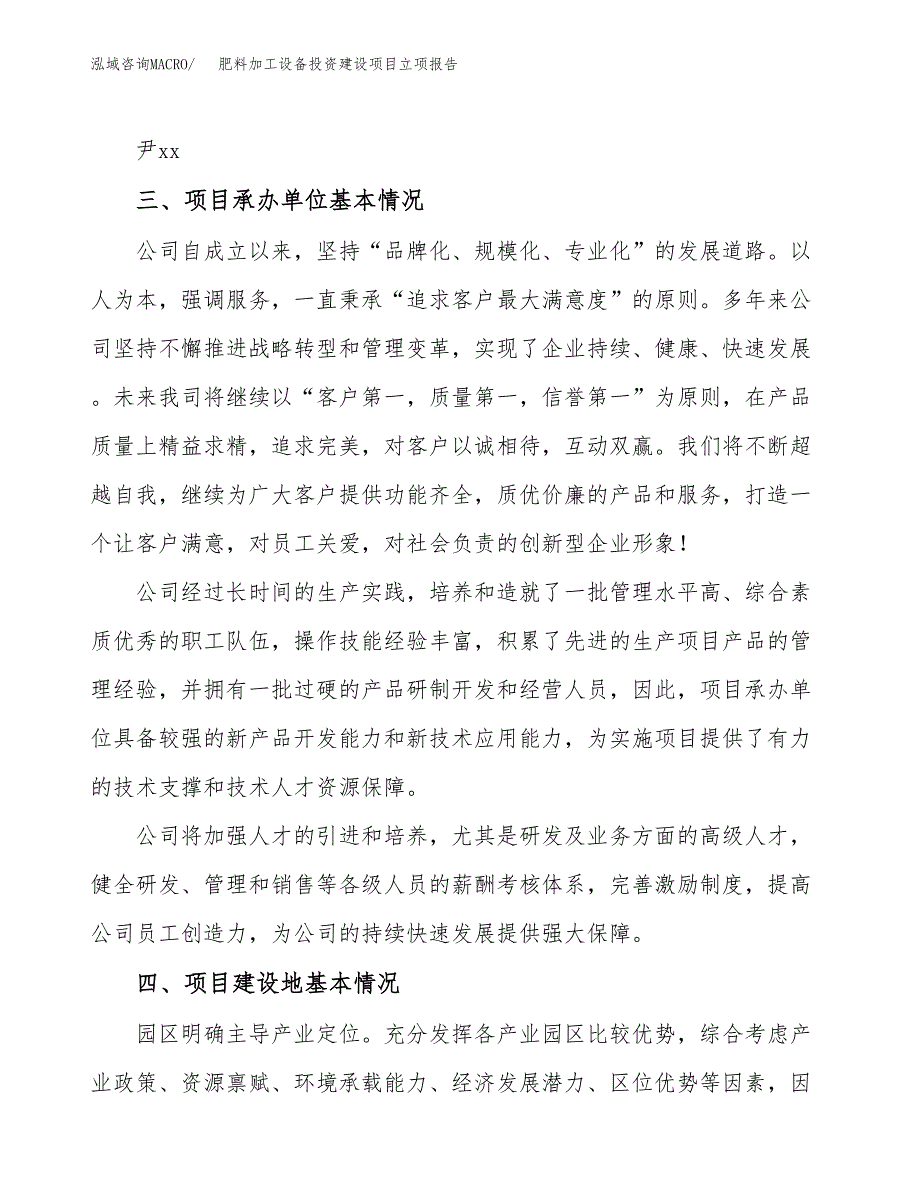 泓域咨询MACRO/ 肥料加工设备投资建设项目立项报告
尹xx
三、项目承办单位基本情况
公司自成立以来，坚持“品牌化、规模化、专业化”的发展道路。以
人为本，强调服务，一直秉承“追求客户最大满意度”的原则。多年来公
司坚持不懈推进战略转型和管理变革，实现了企业持续、健康、快速发展
。未来我司将继续以“客户第一，质量第一，信誉第一”为原则，在产品
质量上精益求精，追求完美，对客户以诚相待，互动双赢。我们将不断超
越自我，继续为广大客户提供功能齐全，质优价廉的产品和服务，打造一
个让客户满意，对员工关爱，对社会负责的创新型企业形象！
公司经过长时间的生产实践，培养和造就了一批管理水平高、综合素
质优秀的职工队伍，操作技能经验丰富，积累了先进的生产项目产品的管
理经验，并拥有一批过硬的产品研制开发和经营人员，因此，项目承办单
位具备较强的新产品开发能力和新技术应用能力，为实施项目提供了有力
的技术支撑和技术人才资源保障。
公司将加强人才的引进和培养，尤其是研发及业务方面的高级人才，
健全研发、管理和销售等各级人员的薪酬考核体系，完善激励制度，提高
公司员工创造力，为公司的持续快速发展提供强大保障。
四、项目建设地基本情况
园区明确主导产业定位。充分发挥各产业园区比较优势，综合考虑产
业政策、资源禀赋、环境承载能力、经济发展潜力、区位优势等因素，因